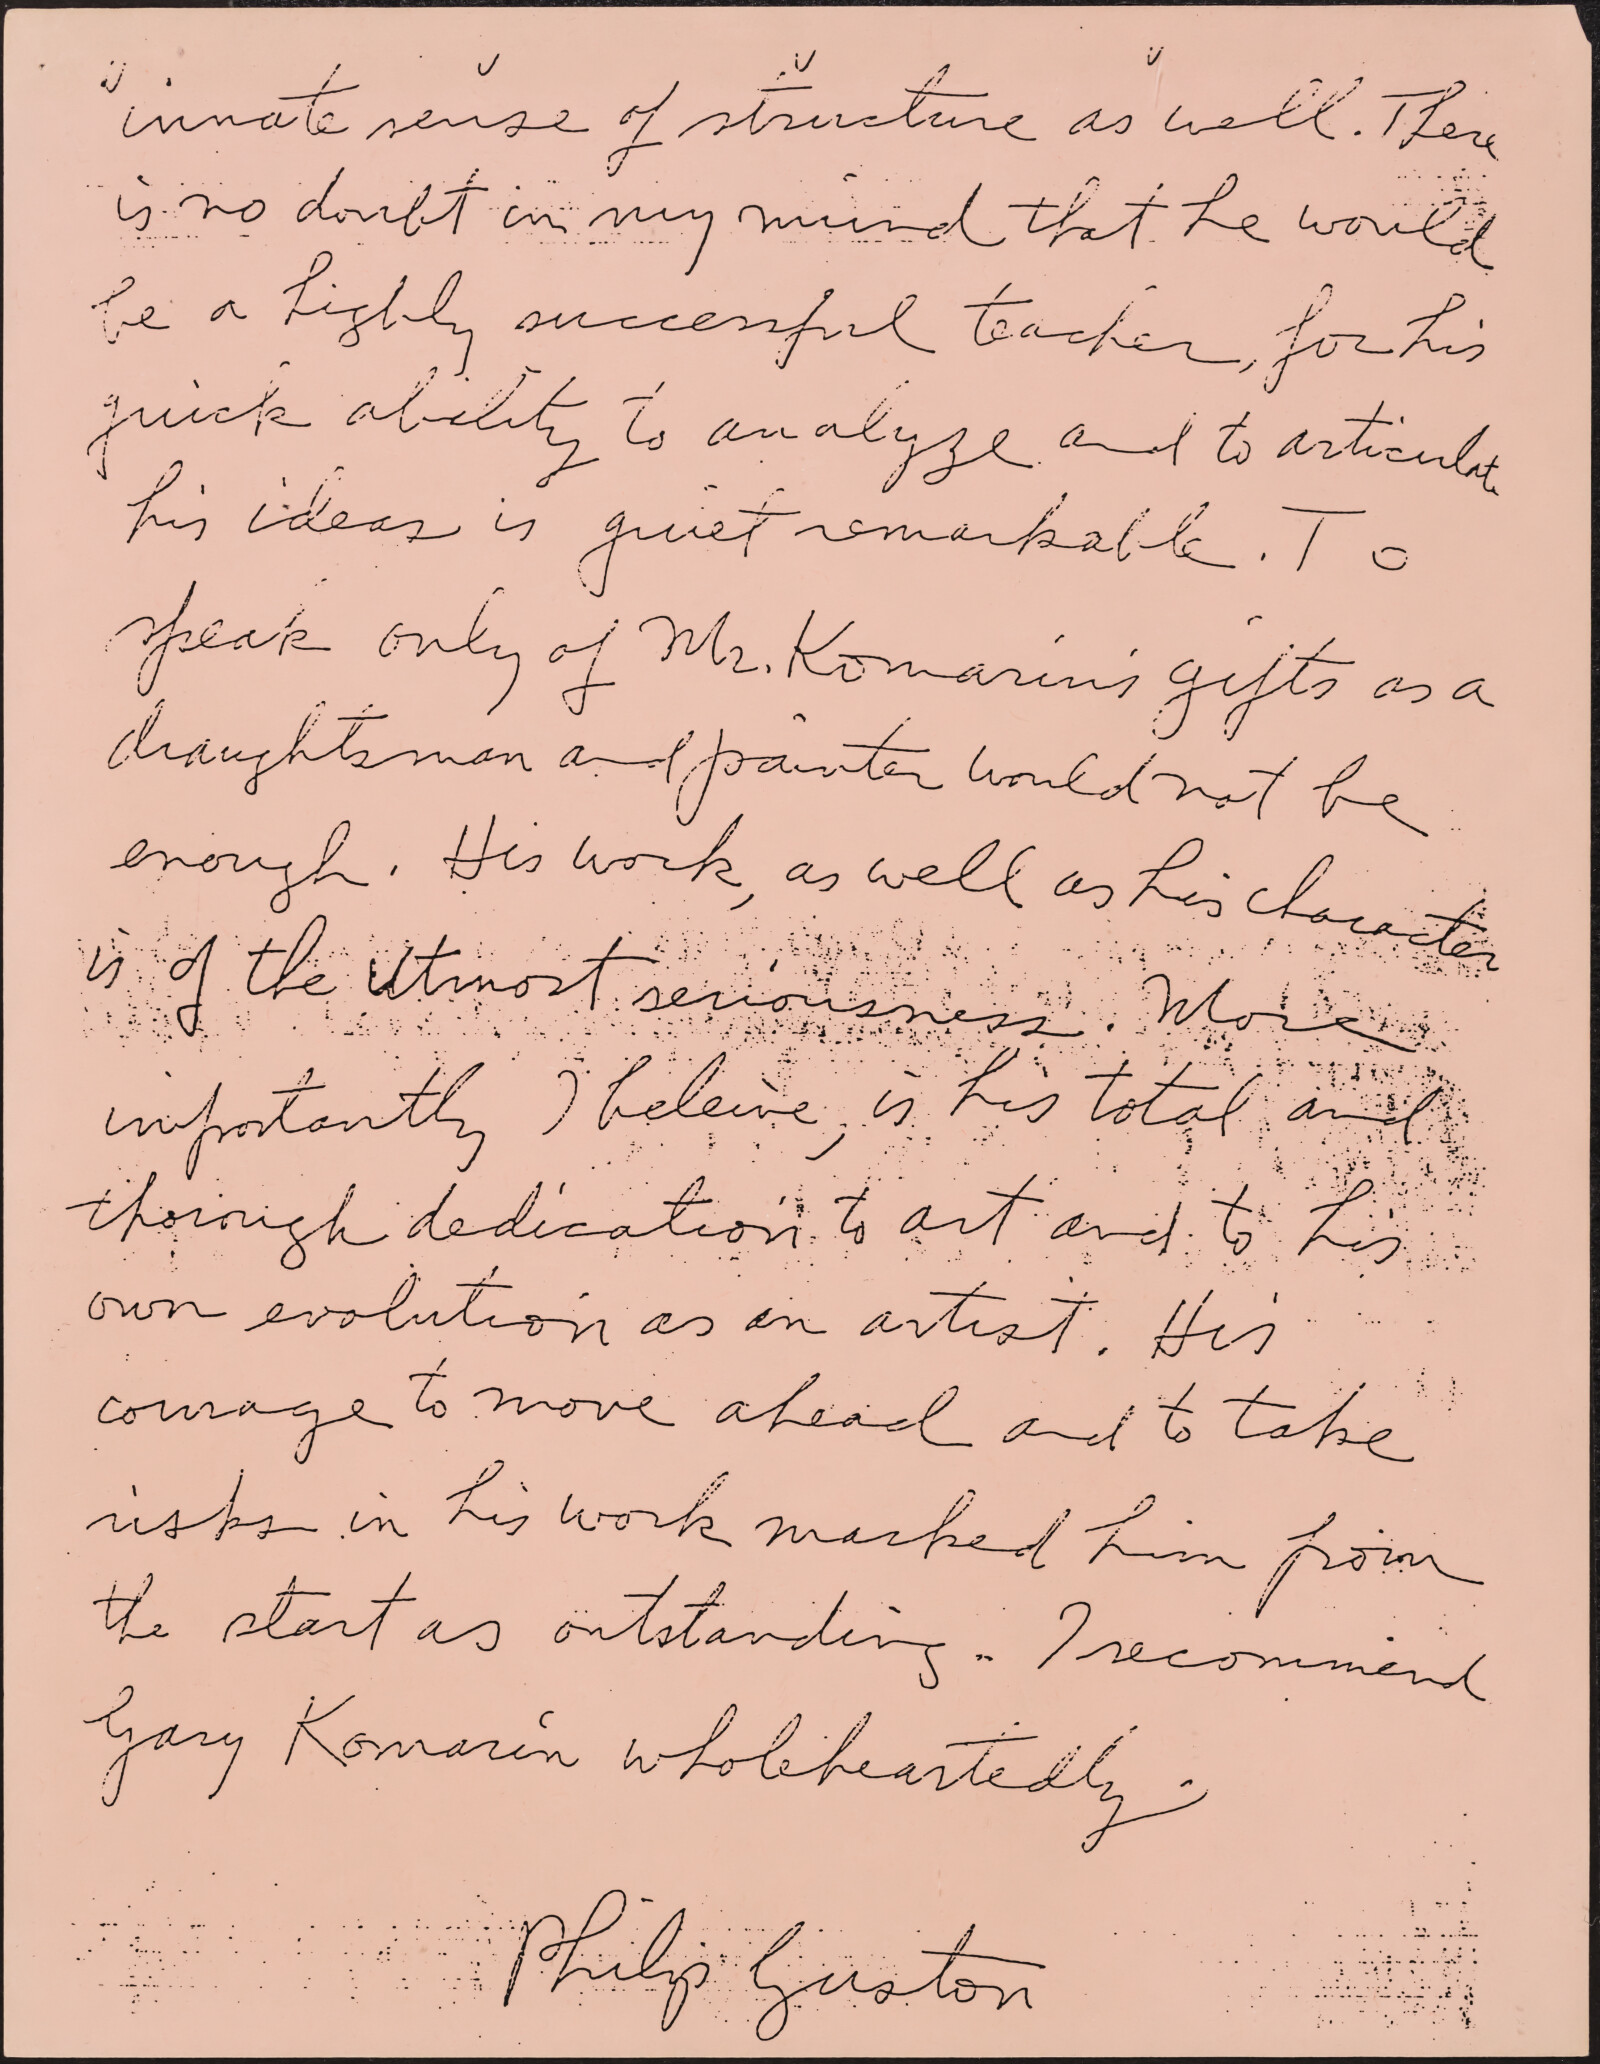 innate sense of structure as well. There
is no doubt in my mind that he would
be a highly successful teacher, for his
quick ability to analyze and to articulate
his ideas is quiet remarkable. To
speak only of Mr. Komarin's gifts as a
draughtsman and painter would not be
enough. His work, as well as his character
is of the utmost seriousness. More
importantly I beleive, is his total and
thorough dedication to art and to his
own evolution as an artist. His
courage to move ahead and to take
risks in his work marked him from
the start as outstanding. I recommend
Gary Komarin wholeheartedly.
Philip Guston